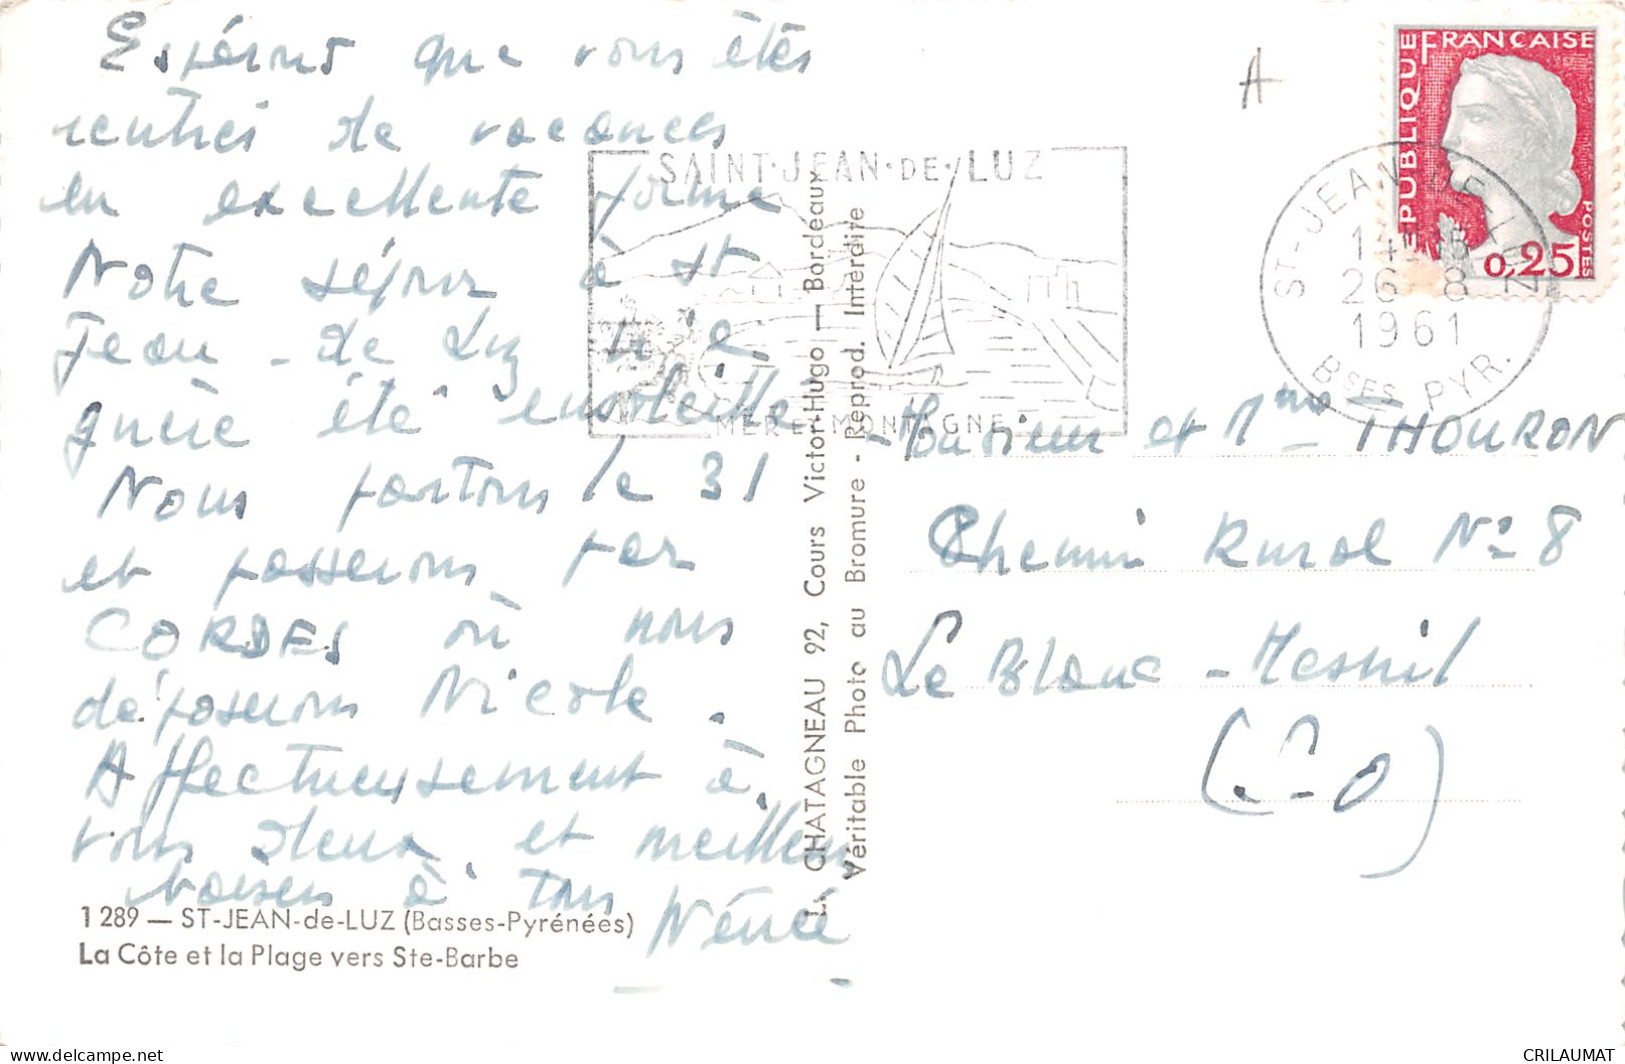 Espérons que vous êtes
rentrés de vacances
en excellente forme
Notre séjour à St
Jean-de Luz n'a
guère été ensoleillé
Nous partons le 31
et passerons par
CORDES où nous
déposerons Nicole.
Affectueusement à
vous deux et meilleurs
baisers à tous
1 289 — ST-JEAN-de-LUZ (Basses-Pyrénées)
La Côte et la Plage vers Ste-Barbe
SAINT·JEAN·DE·LUZ
MER ET MONTAGNE
CHATAGNEAU 92, Cours Victor-Hugo — Bordeaux
Véritable Photo au Bromure - Reprod. Interdite
A
RÉPUBLIQUE FRANÇAISE
POSTES
0,25
ST-JEAN-DE-LUZ
26 - 8
1961
BSES PYR.
Monsieur et Mme THOURON
Chemin Rural No 8
Le Blanc-Mesnil
(S-O)
CRILAUMAT